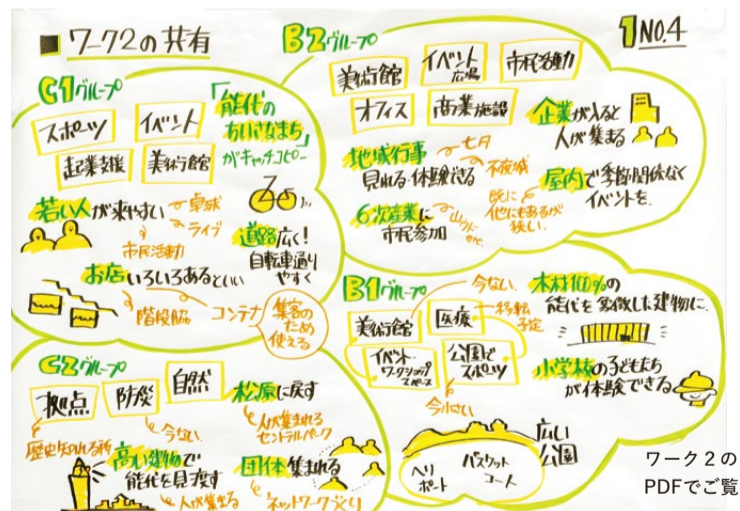 ■ ワーク2の共有
1 NO.4
C1グループ
スポーツ
イベント
起業支援
美術館
「能代の
ちいさなまち」
がキャッチコピー
若い人が来やすい
卓球
ライブ
市民活動
道路広く!
自転車通り
やすく
お店いろいろあるといい
階段脇
コンテナ
集客の
ため
使える
B2グループ
美術館
イベント
広場
市民活動
オフィス
商業施設
企業が入ると
人が集まる
地域行事
見れる・体験できる
七夕
不夜城
屋内で季節関係なく
イベントを
既に
他にもあるが
狭い
6次産業に
市民参加
etc.
B1グループ
今ない
美術館
医療
移転
予定
イベント・
ワークショップ
スペース
公園で
スポーツ
今小さい
木材100%の
能代を象徴した建物に
小学校の子どもたち
が体験できる
広い
公園
ヘリ
ポート
バスケット
コート
C2グループ
拠点
防災
自然
松原に戻す
人が集まれる
セントラルパーク
今ない
歴史知れる所
高い建物で
能代を見渡す
人が集まる
団体集まれる
ネットワークづくり
ワーク2の
PDFでご覧